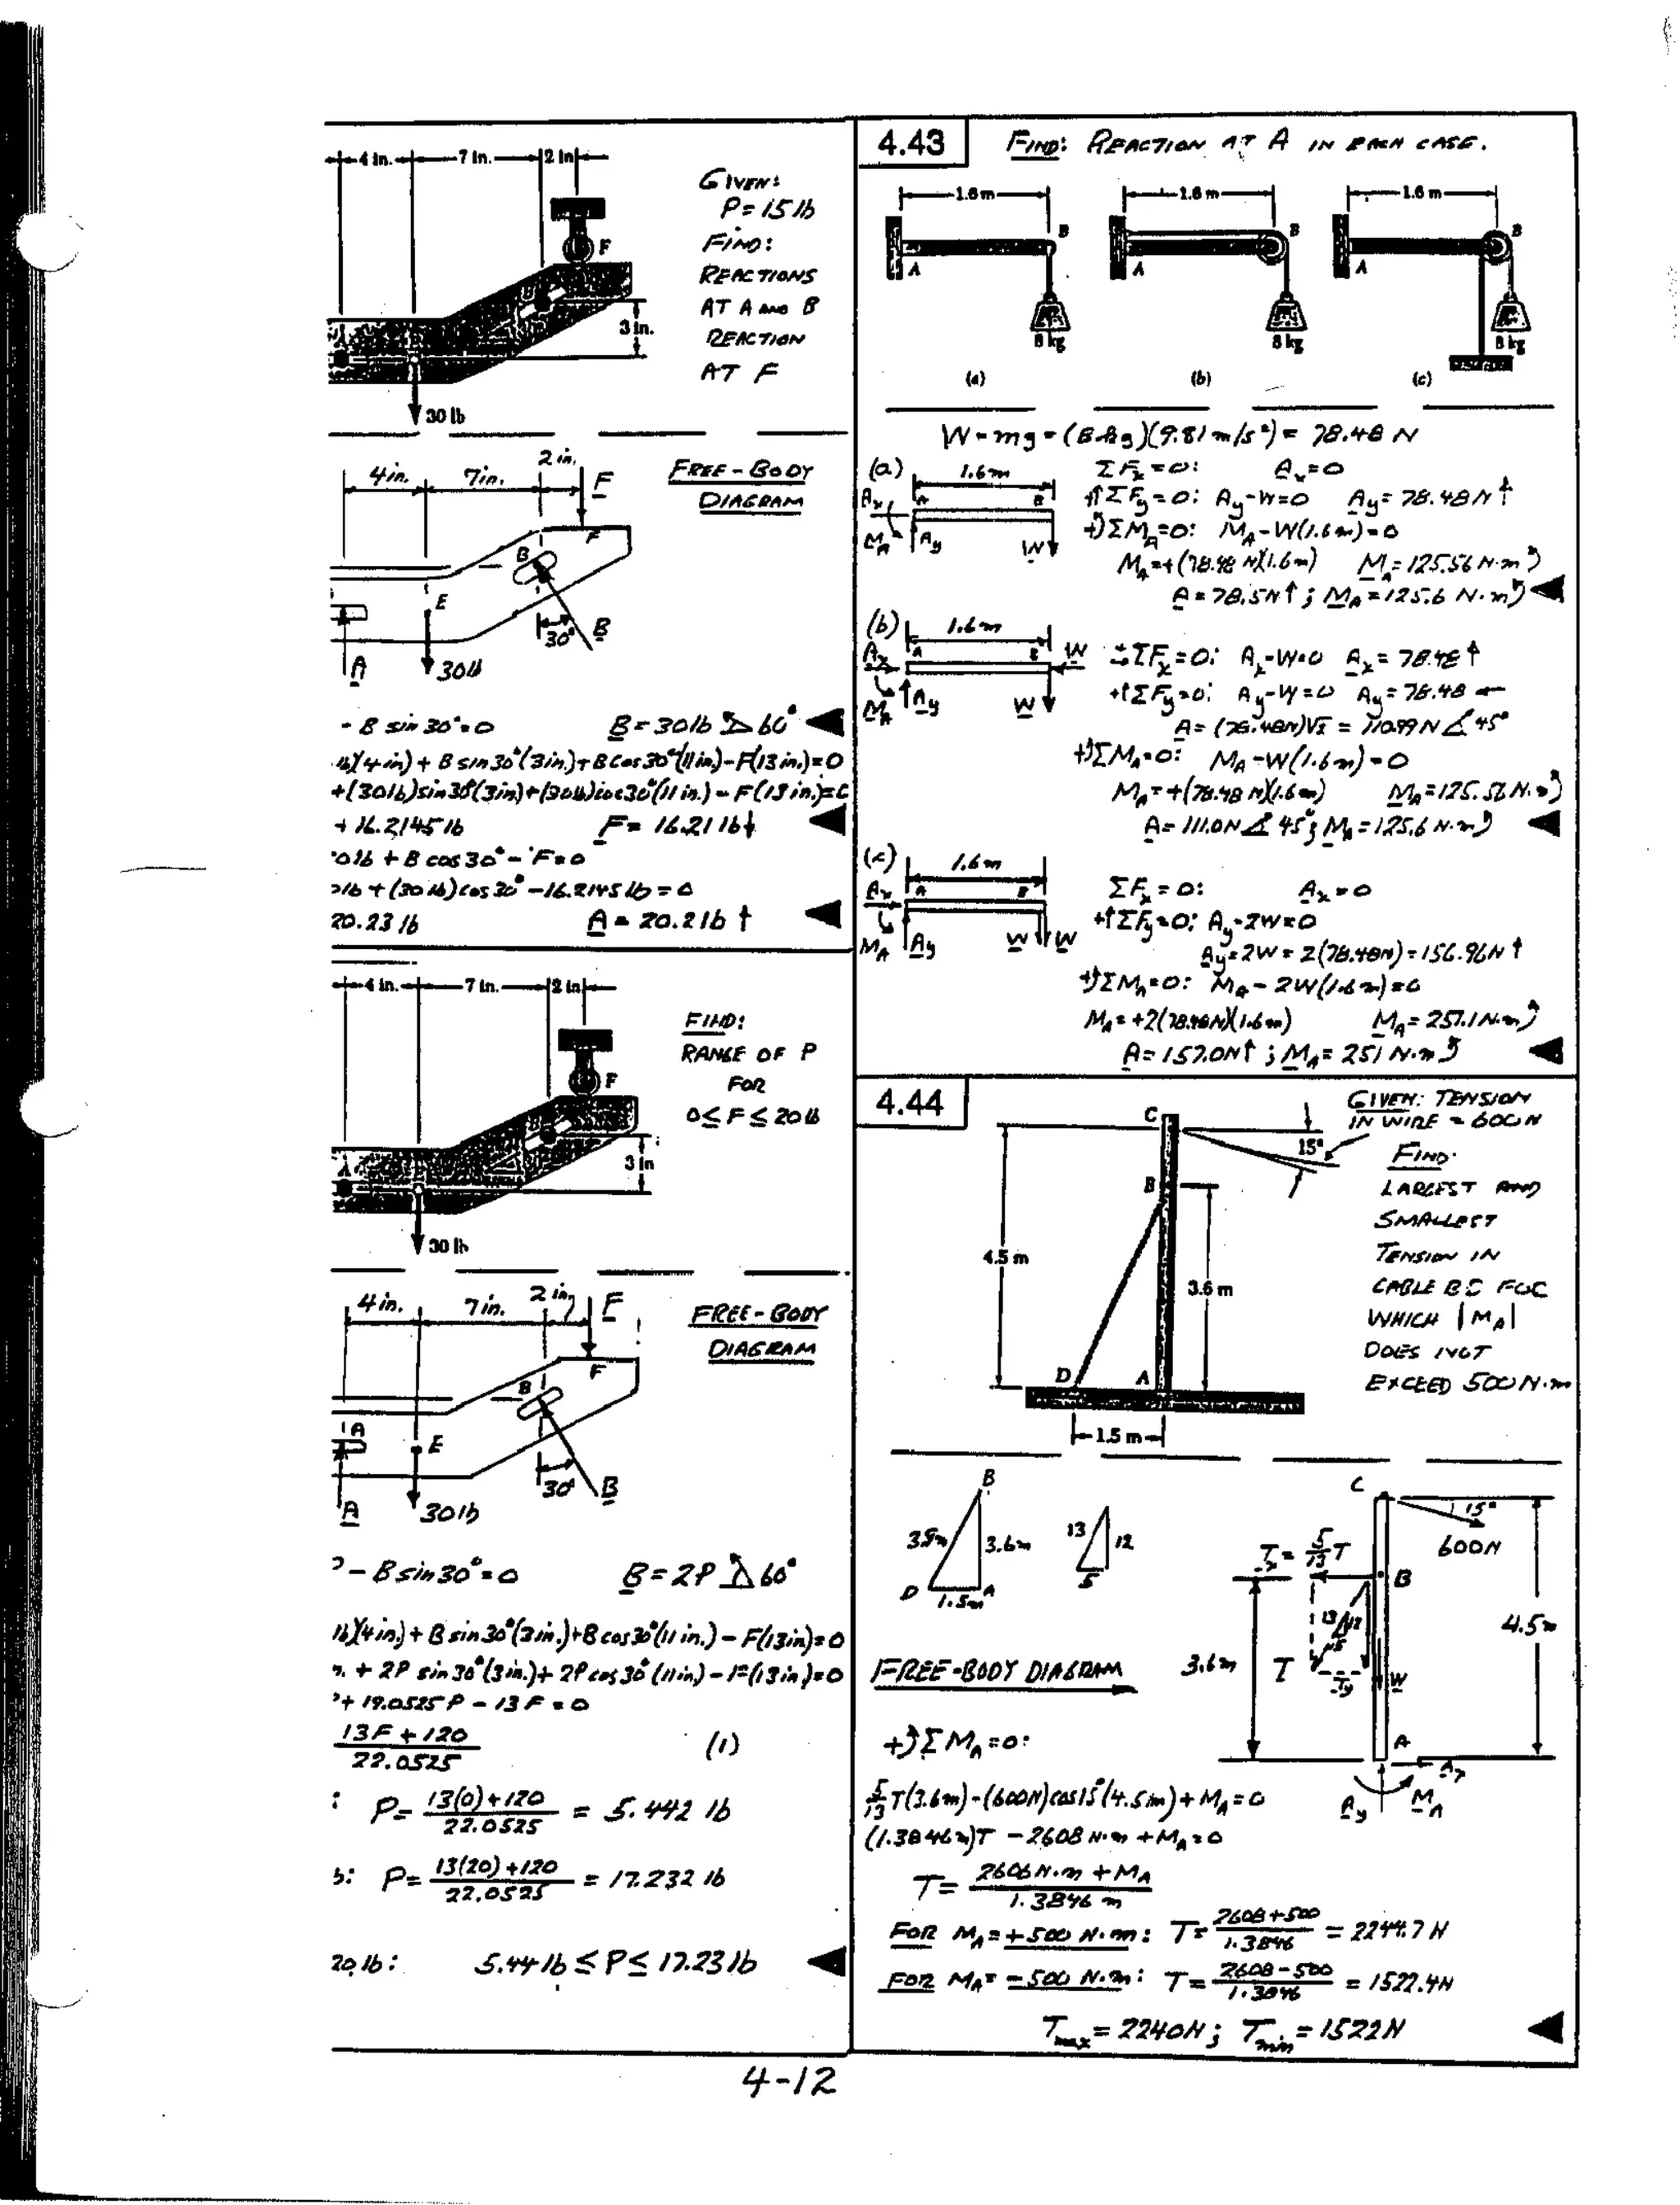 4 in. 7 in. 2 in
GIVEN:
P = 15 lb
FIND:
REACTIONS
AT A AND B
REACTION
AT F
F
B
A
3 in.
30 lb
4 in. 7 in. 2 in. F
FREE-BODY
DIAGRAM
F
B
E
30° B
A 30 lb
- B sin 30° = 0 B = 30 lb 60°
lb)(4 in) + B sin 30°(3 in.) + B cos 30°(11 in.) - F(13 in.) = 0
+(30 lb) sin 30°(3 in) + (30 lb) cos 30°(11 in.) - F(13 in.) = 0
+ 16.2145 lb F = 16.21 lb ↓
0 lb + B cos 30° - F = 0
0 lb + (30 lb) cos 30° - 16.2145 lb = 0
20.23 lb A = 20.2 lb ↑
4 in. 7 in. 2 in
FIND:
RANGE OF P
FOR
0 ≤ F ≤ 20 lb
F
B
A
3 in
30 lb
4 in. 7 in. 2 in. F
FREE-BODY
DIAGRAM
F
B
A
E
30° B
A 30 lb
- B sin 30° = 0 B = 2P 60°
lb)(4 in.) + B sin 30°(3 in.) + B cos 30°(11 in.) - F(13 in) = 0
+ 2P sin 30°(3 in.) + 2P cos 30°(11 in) - F(13 in) = 0
+ 19.0525 P - 13 F = 0
13F + 120
22.0525
(1)
: P = 13(0) + 120 / 22.0525 = 5.442 lb
b: P = 13(20) + 120 / 22.0525 = 17.232 lb
20 lb: 5.44 lb ≤ P ≤ 17.23 lb
4.43 FIND: REACTION AT A IN EACH CASE.
1.6 m 1.6 m 1.6 m
B B B
A A A
8 kg 8 kg 8 kg
(a) (b) (c)
W = mg = (8 kg)(9.81 m/s²) = 78.48 N
(a) 1.6 m ΣFx = 0: Ax = 0
Ax A B +↑ΣFy = 0: Ay - W = 0 Ay = 78.48 N ↑
MA Ay W +↺ΣMA = 0: MA - W(1.6 m) = 0
MA = +(78.48 N)(1.6 m) MA = 125.56 N·m ↺
A = 78.5 N ↑; MA = 125.6 N·m ↺
(b) 1.6 m
Ax A B W ΣFx = 0: Ax - W = 0 Ax = 78.48 ↑
MA Ay W +↑ΣFy = 0: Ay - W = 0 Ay = 78.48 ←
A = (78.48 N)√2 = 110.99 N 45°
+↺ΣMA = 0: MA - W(1.6 m) = 0
MA = +(78.48 N)(1.6 m) MA = 125.56 N·m ↺
A = 111.0 N 45°; MA = 125.6 N·m ↺
(c) 1.6 m
Ax A B ΣFx = 0: Ax = 0
MA Ay W W +↑ΣFy = 0; Ay - 2W = 0
Ay = 2W = 2(78.48 N) = 156.96 N ↑
+↺ΣMA = 0: MA - 2W(1.6 m) = 0
MA = +2(78.48 N)(1.6 m) MA = 251.1 N·m ↺
A = 157.0 N ↑; MA = 251 N·m ↺
4.44
GIVEN: TENSION
IN WIRE = 600 N
FIND:
LARGEST AND
SMALLEST
TENSION IN
CABLE BD FOR
WHICH |MA|
DOES NOT
EXCEED 500 N·m
C
15°
B
4.5 m
3.6 m
D A
1.5 m
B
3.9 m 3.6 m 13 12
D 1.5 m A 5
C
15°
600 N
Tx = 5/13 T
B
13 12
5
3.6 m T Ty W 4.5 m
FREE-BODY DIAGRAM
A
Ax
Ay MA
+↺ΣMA = 0:
5/13 T(3.6 m) - (600 N) cos 15°(4.5 m) + MA = 0
(1.3846 m)T - 2608 N·m + MA = 0
T = 2608 N·m + MA / 1.3846 m
FOR MA = +500 N·m: T = 2608 + 500 / 1.3846 = 2244.7 N
FOR MA = -500 N·m: T = 2608 - 500 / 1.3846 = 1522.4 N
Tmax = 2240 N; Tmin = 1522 N
4-12